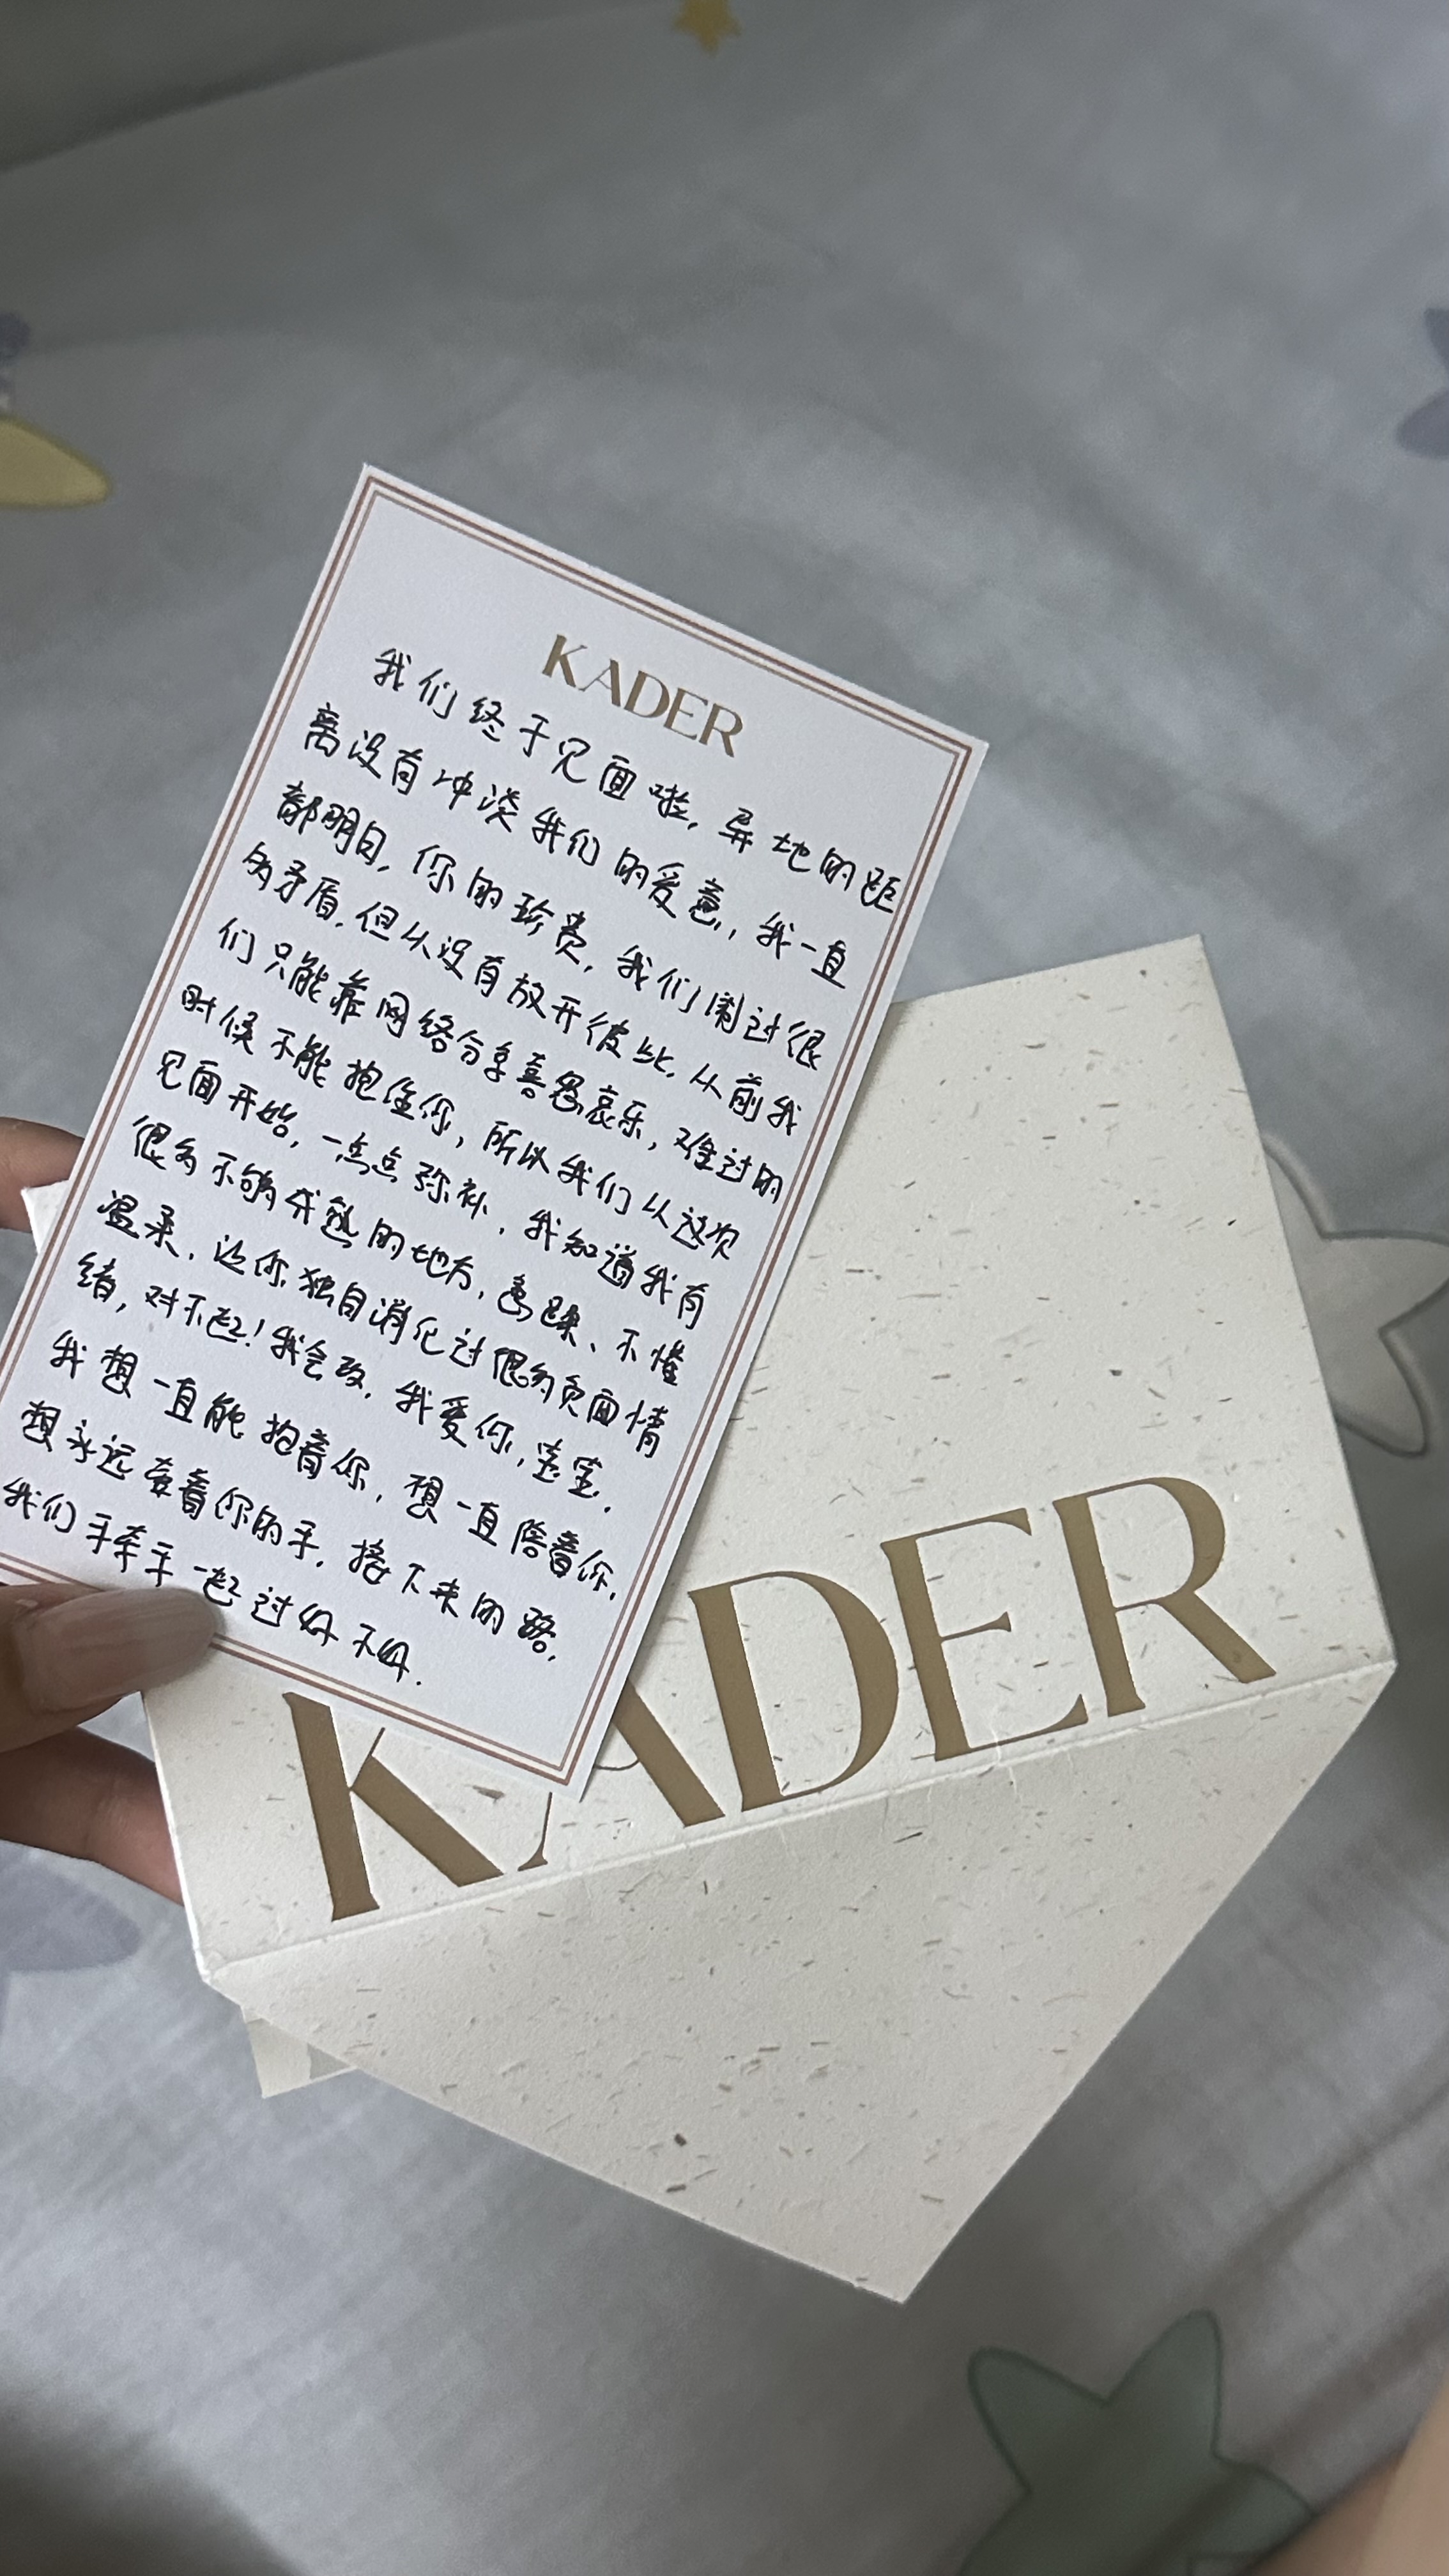 KADER
我们终于见面啦，异地的距
离没有冲淡我们的爱意，我一直
都明白，你的珍贵，我们闹过很
多矛盾，但从没有放开彼此，从前我
们只能靠网络分享喜怒哀乐，难过的
时候不能抱住你，所以我们从这次
见面开始，一点点弥补，我知道我有
很多不够成熟的地方，急躁、不懂
温柔，让你独自消化过很多负面情
绪，对不起！我会改，我爱你，宝宝，
我想一直能抱着你，想一直陪着你，
想永远牵着你的手，接下来的路，
我们手牵手一起过好不好.
KADER